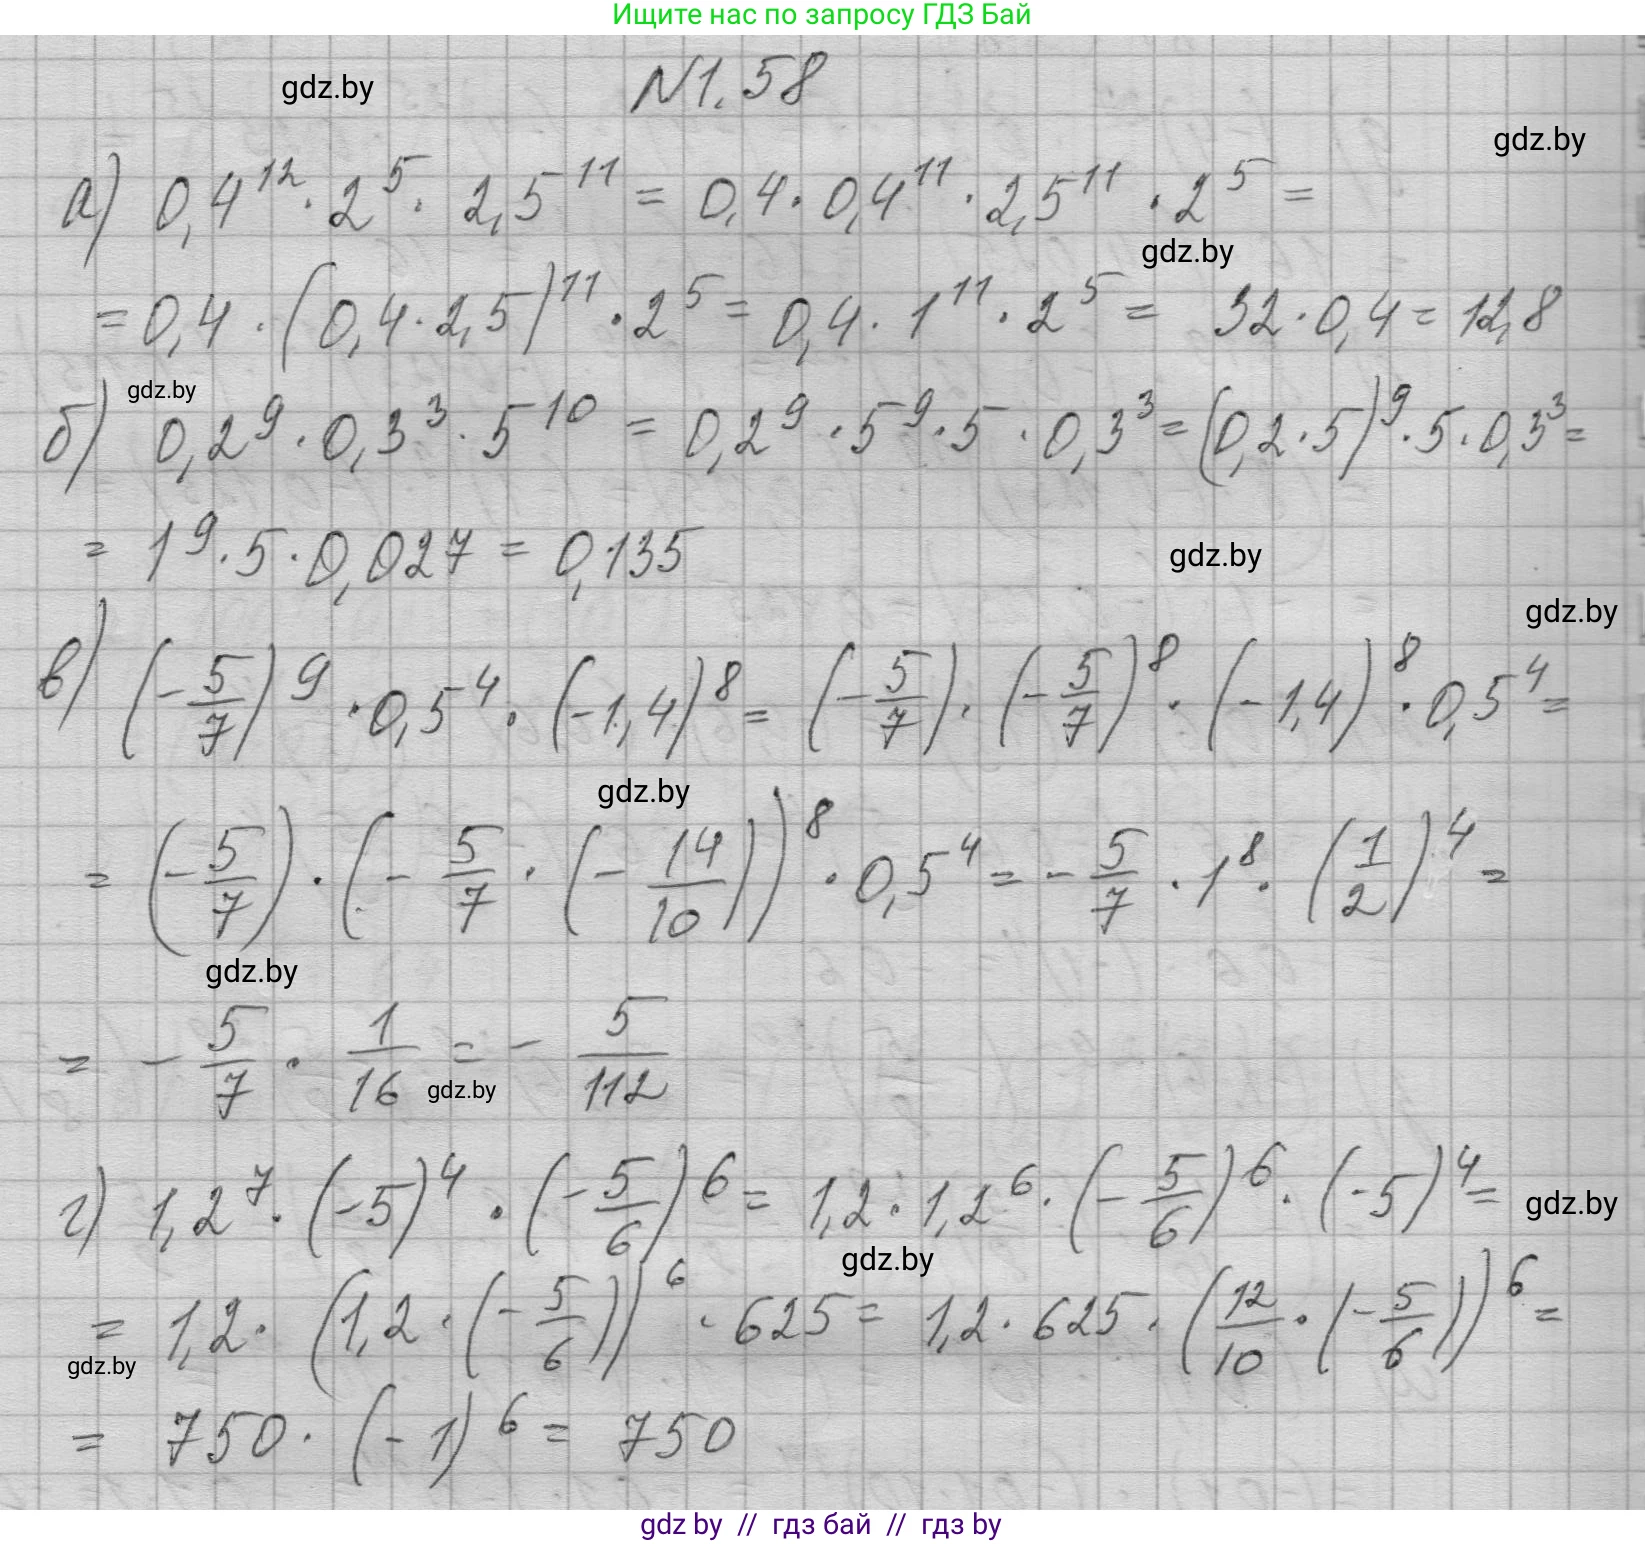 Ищите нас по запросу ГДЗ Бай
gdz.by
N1.58
gdz.by
а) 0,4¹² · 2⁵ · 2,5¹¹ = 0,4 · 0,4¹¹ · 2,5¹¹ · 2⁵ =
gdz.by
= 0,4 · (0,4 · 2,5)¹¹ · 2⁵ = 0,4 · 1¹¹ · 2⁵ = 32 · 0,4 = 12,8
gdz.by
б) 0,2⁹ · 0,3³ · 5¹⁰ = 0,2⁹ · 5⁹ · 5 · 0,3³ = (0,2 · 5)⁹ · 5 · 0,3³ =
= 1⁹ · 5 · 0,027 = 0,135
gdz.by
gdz.by
в) (-5/7)⁹ · 0,5⁴ · (-1,4)⁸ = (-5/7) · (-5/7)⁸ · (-1,4)⁸ · 0,5⁴ =
gdz.by
= (-5/7) · (-5/7 · (-14/10))⁸ · 0,5⁴ = -5/7 · 1⁸ · (1/2)⁴ =
gdz.by
= -5/7 · 1/16 = -5/112
gdz.by
г) 1,2⁷ · (-5)⁴ · (-5/6)⁶ = 1,2 · 1,2⁶ · (-5/6)⁶ · (-5)⁴ =
gdz.by
gdz.by
= 1,2 · (1,2 · (-5/6))⁶ · 625 = 1,2 · 625 · (12/10 · (-5/6))⁶ =
gdz.by
= 750 · (-1)⁶ = 750
gdz by // гдз бай // гдз by